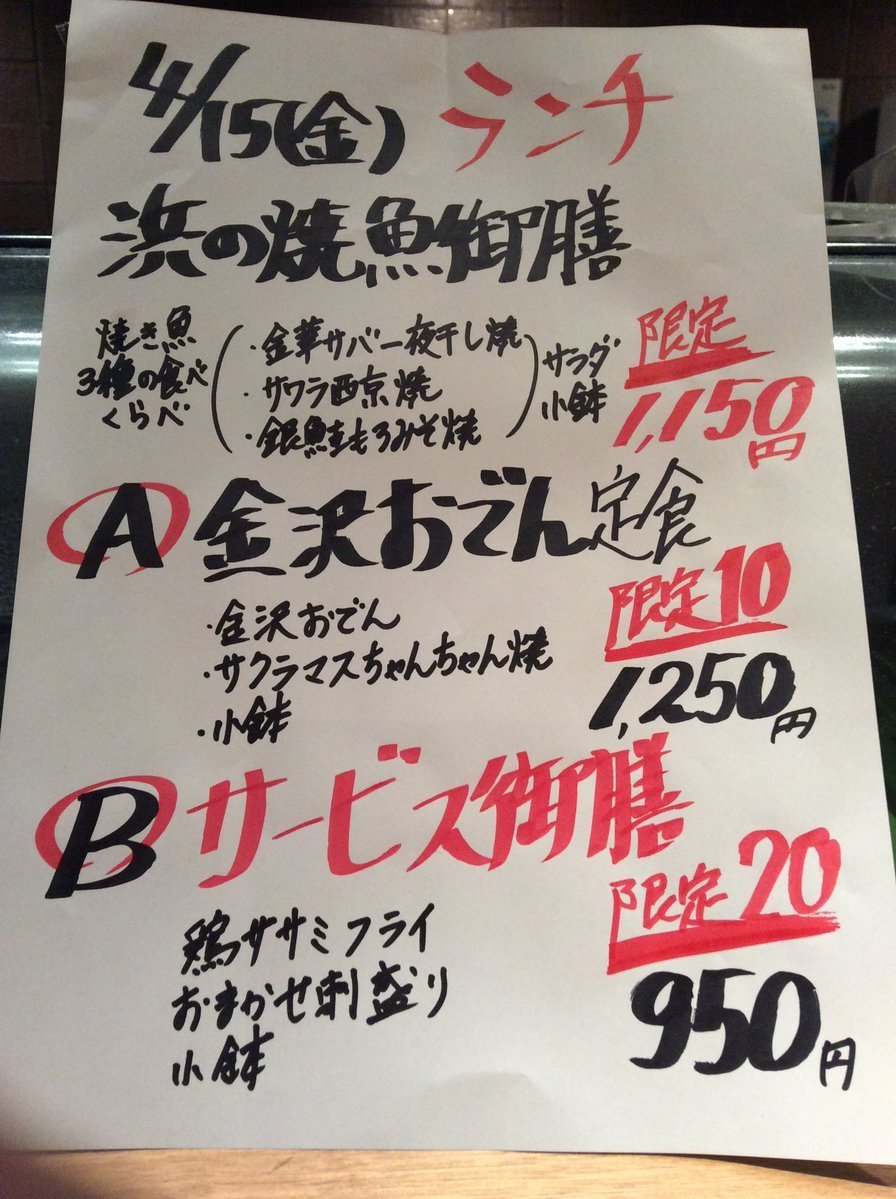 4/15(金) ランチ
浜の焼魚御膳
焼き魚
3種の食べ
くらべ
・金華サバ一夜干し焼
・サワラ西京焼
・銀鮭もろみそ焼
サラダ
小鉢
限定
1,150円
A 金沢おでん定食
・金沢おでん
・サクラマスちゃんちゃん焼
・小鉢
限定10
1,250円
B サービス御膳
鶏ササミフライ
おまかせ刺盛り
小鉢
限定20
950円